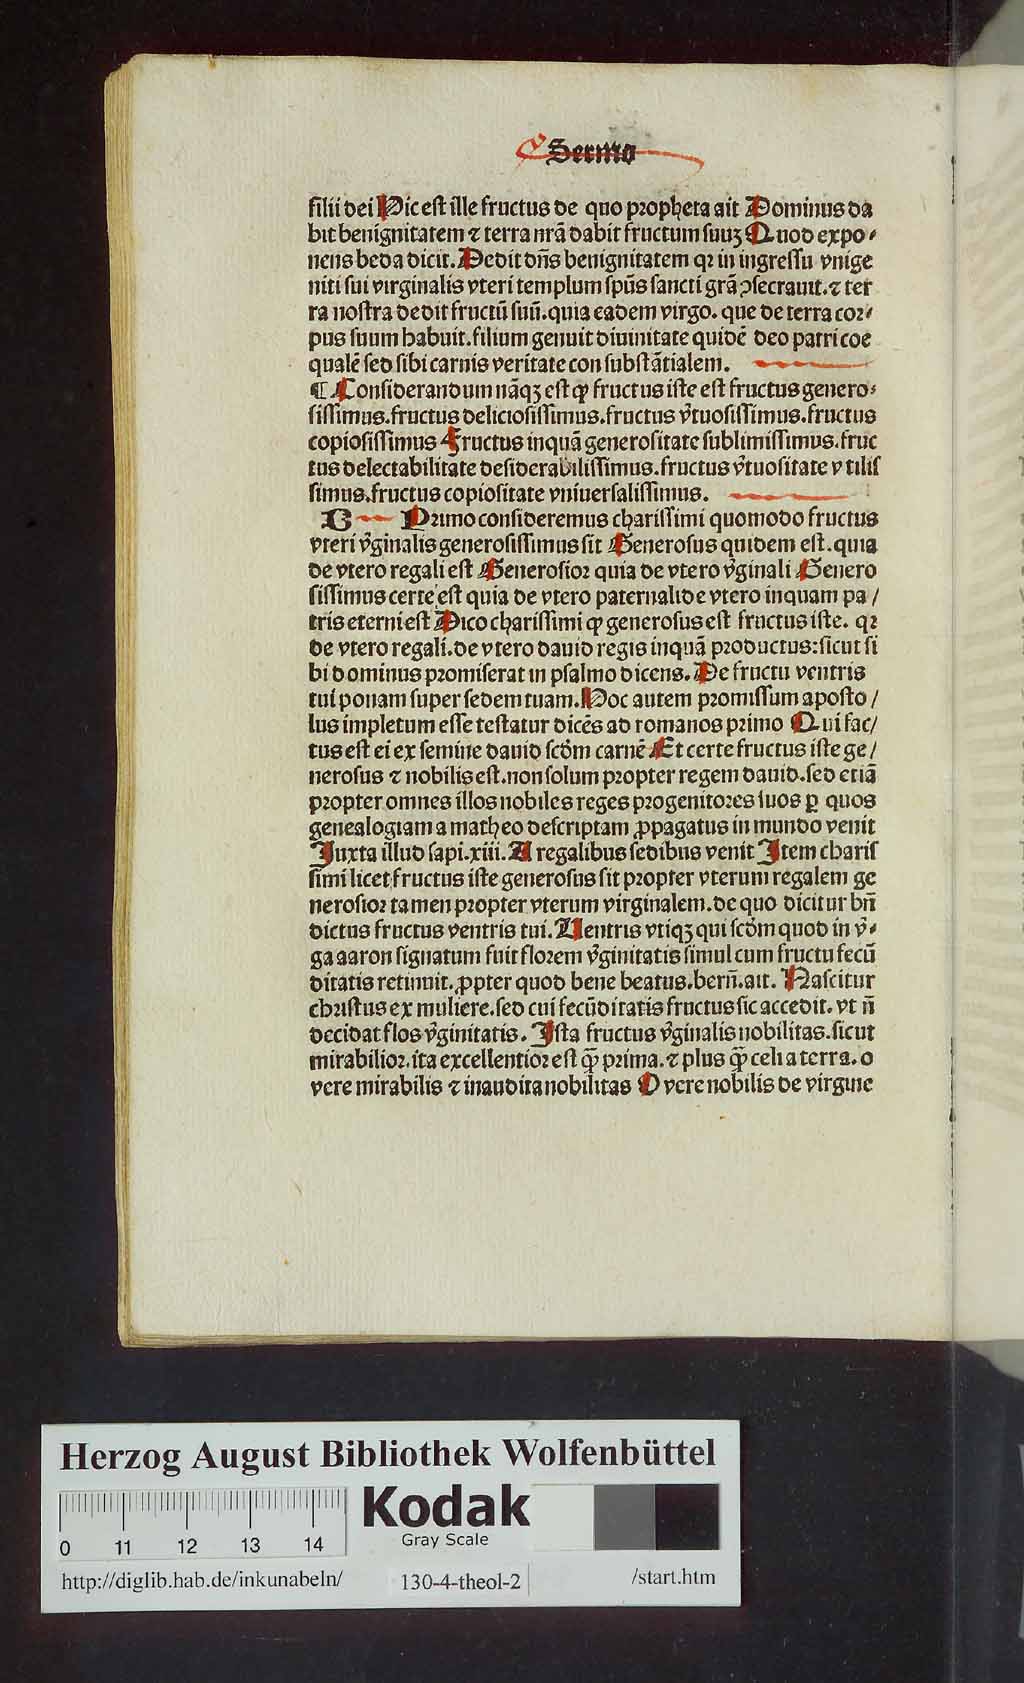 Sermo
filii dei Hic est ille fructus de quo propheta ait Dominus da
bit benignitatem ⁊ terra nrā dabit fructum suuꝫ Quod expo⸗
nens beda dicit. Dedit dn̄s benignitatem qꝛ in ingressu vnige
niti sui virginalis vteri templum spūs sancti grā ꝯsecrauit. ⁊ ter
ra nostra dedit fructū suū. quia eadem virgo. que de terra cor⸗
pus suum habuit. filium genuit diuinitate quidē deo patri coe
qualē sed sibi carnis veritate con substātialem.
¶ Considerandum nāqꝫ est ꝙ fructus iste est fructus genero⸗
sissimus. fructus deliciosissimus. fructus v̄tuosissimus. fructus
copiosissimus Fructus inquā generositate sublimissimus. fruc
tus delectabilitate desiderabilissimus. fructus v̄tuositate v tilis
simus. fructus copiositate vniuersalissimus.
B Primo consideremus charissimi quomodo fructus
vteri v̄ginalis generosissimus sit Generosus quidem est. quia
de vtero regali est Generosior quia de vtero v̄ginali Genero
sissimus certe est quia de vtero paternali de vtero inquam pa /
tris eterni est Dico charissimi ꝙ generosus est fructus iste. qꝛ
de vtero regali. de vtero dauid regis inquā productus: sicut si
bi dominus promiserat in psalmo dicens. De fructu ventris
tui ponam super sedem tuam. Hoc autem promissum aposto /
lus impletum esse testatur dicēs ad romanos primo Qui fac/
tus est ei ex semine dauid scd̄m carnē Et certe fructus iste ge /
nerosus ⁊ nobilis est. non solum propter regem dauid. sed etiā
propter omnes illos nobiles reges progenitores suos ꝑ quos
genealogiam a matheo descriptam ꝓpagatus in mundo venit
Juxta illud sapi. xiii. A regalibus sedibus venit Item charis
simi licet fructus iste generosus sit propter vterum regalem ge
nerosior tamen propter vterum virginalem. de quo dicitur bn̄
dictus fructus ventris tui. Uentris vtiqꝫ qui scd̄m quod in v̄⸗
ga aaron signatum fuit florem v̄ginitatis simul cum fructu fecū
ditatis retinuit. ꝓpter quod bene beatus. bern̄. ait. Nascitur
christus ex muliere. sed cui fecūditatis fructus sic accedit. vt n̄
decidat flos v̄ginitatis. Ista fructus v̄ginalis nobilitas. sicut
mirabilior. ita excellentior est q̄ꝫ prima. ⁊ plus q̄ꝫ celi a terra. o
vere mirabilis ⁊ inaudita nobilitas O vere nobilis de virgine
Herzog August Bibliothek Wolfenbüttel
Kodak
Gray Scale
0 11 12 13 14
http://diglib.hab.de/inkunabeln/ 130-4-theol-2 /start.htm